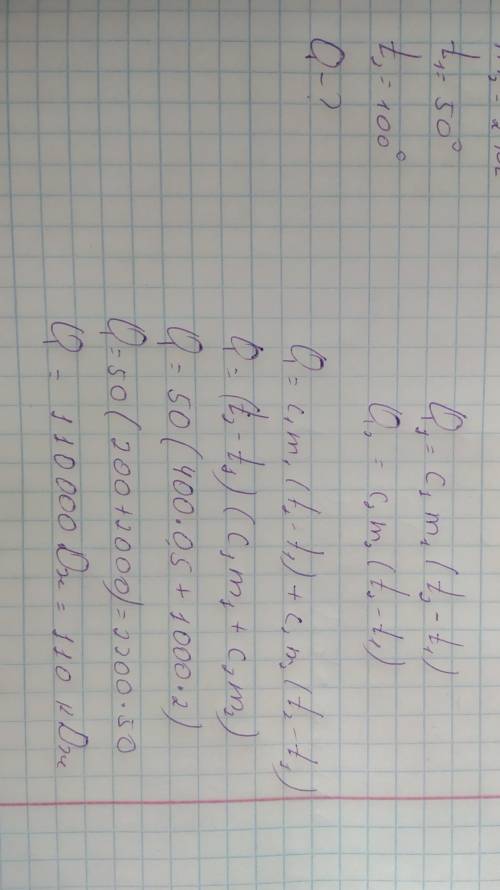 t₁ = 50°
t₂ = 100°
Q - ?
Q₁ = c₁ m₁ (t₂ - t₁)
Q₂ = c₂ m₂ (t₂ - t₁)
Q = c₁ m₁ (t₂ - t₁) + c₂ m₂ (t₂ - t₁)
Q = (t₂ - t₁) (c₁ m₁ + c₂ m₂)
Q = 50 (400·0,5 + 1000·2)
Q = 50 (200 + 2000) = 2200·50
Q = 110000 Дж = 110 кДж